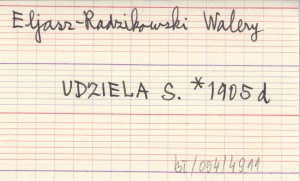 Eljasz-Radzikowski Walery
UDZIELA S. *1905 d
BI/054/4911